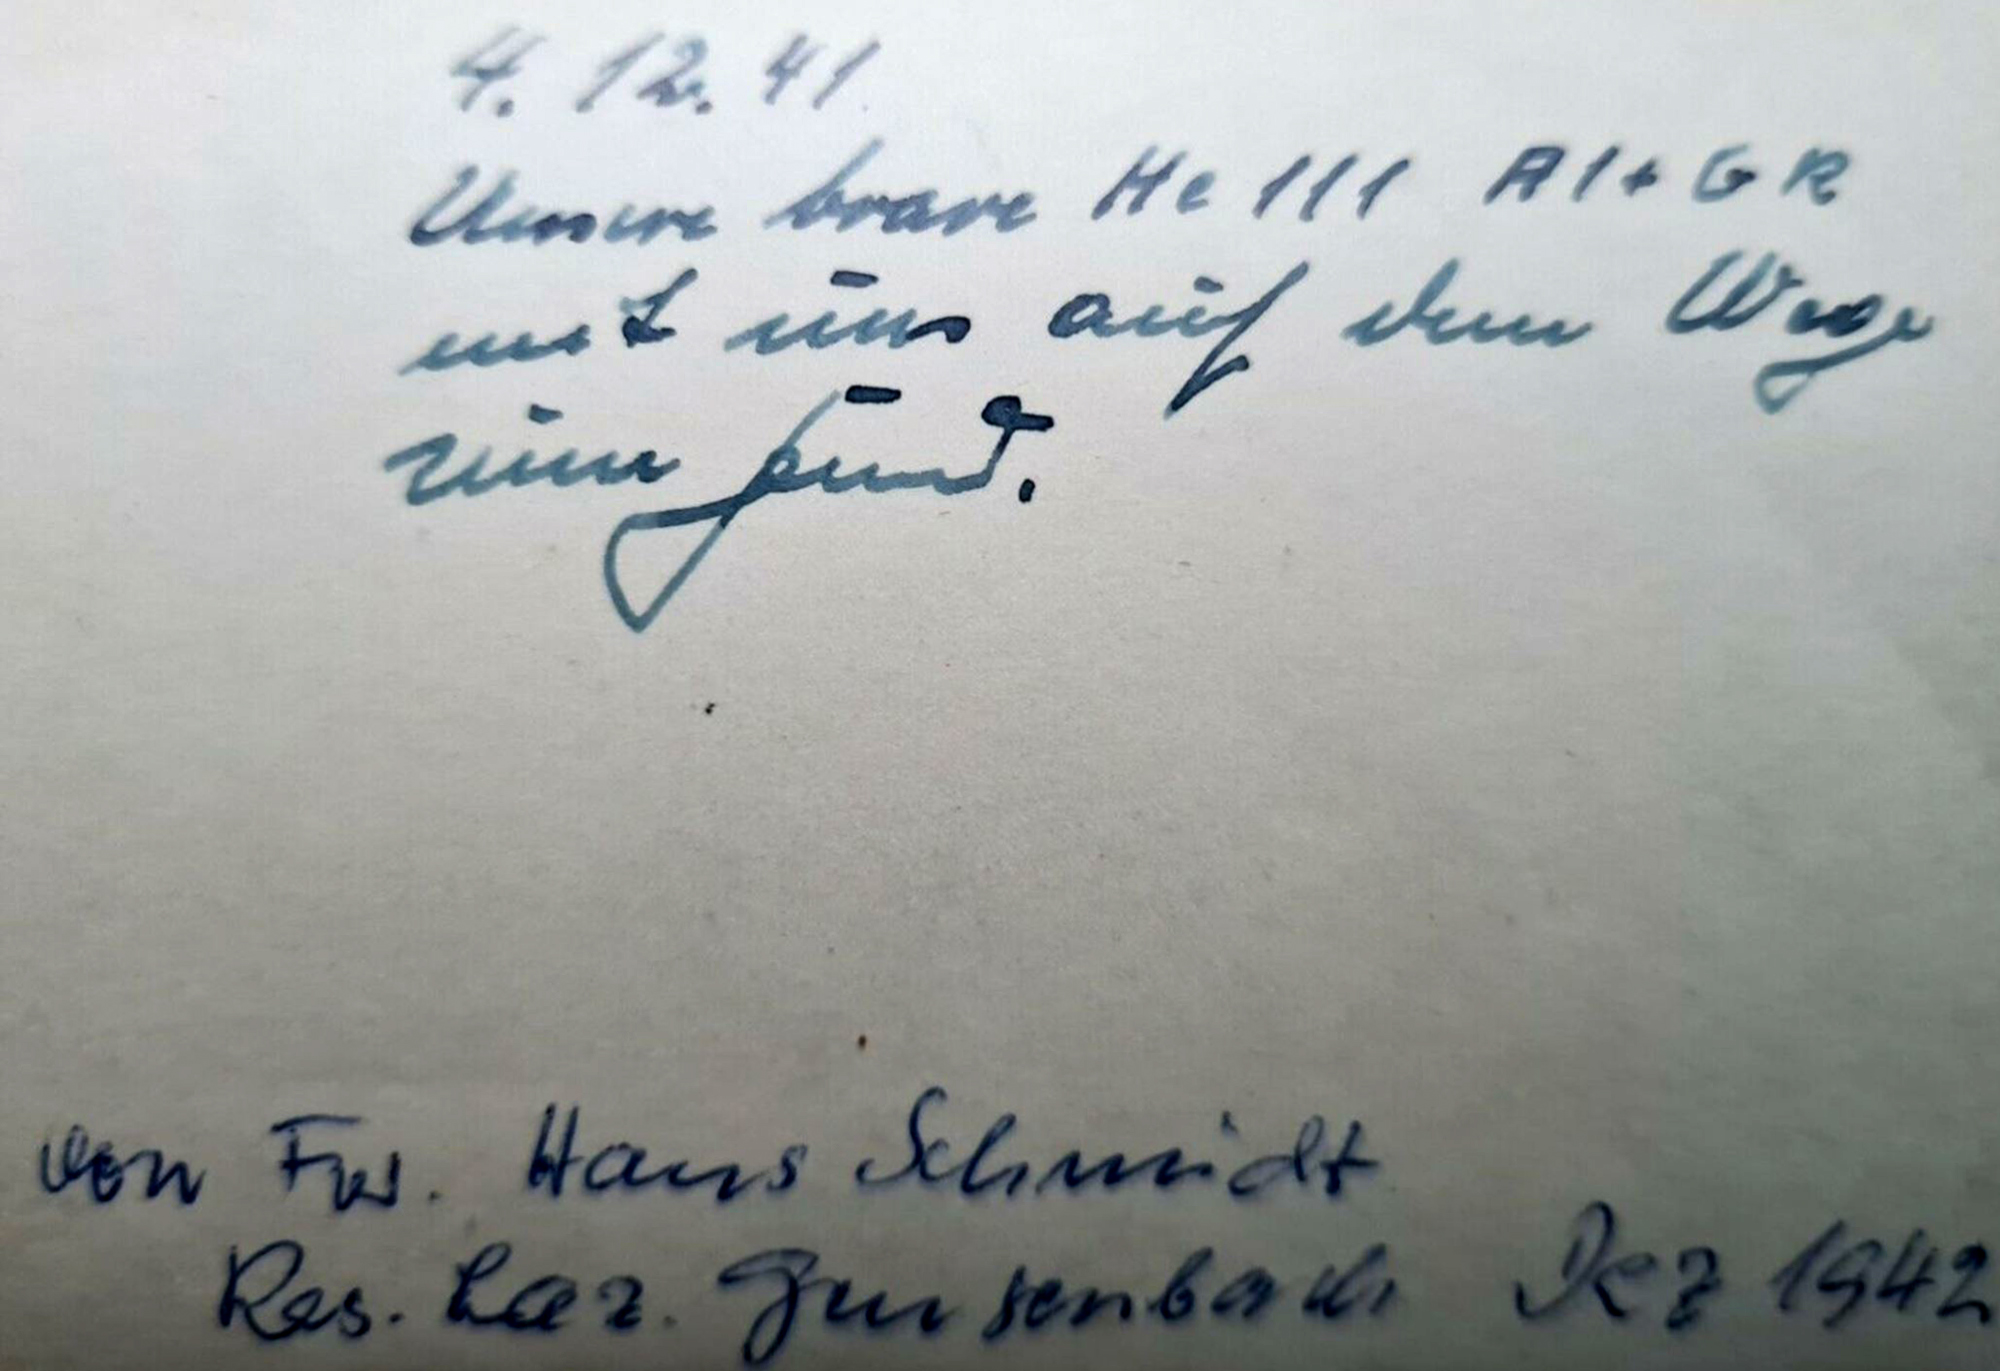 4. 12. 41
Unsere brave He 111 A1+GR
mit uns auf dem Wege
zum Feind.
von Fw. Hans Schmidt
Res. Laz. Dez 1942